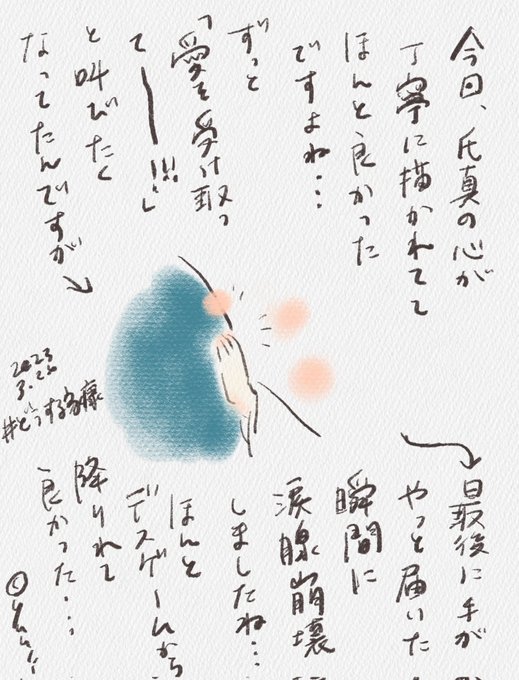 今日、氏真の心が
丁寧に描かれてて
ほんと良かった
ですよね…
ずっと
「愛を受け取っ
てー!!!」
と叫びたく
なってたんですが
2023
3.26
#どうする家康
最後に手が
やっと届いた
瞬間に
涙腺崩壊
しましたね…
ほんと
デスゲームから
降りれて
良かった…